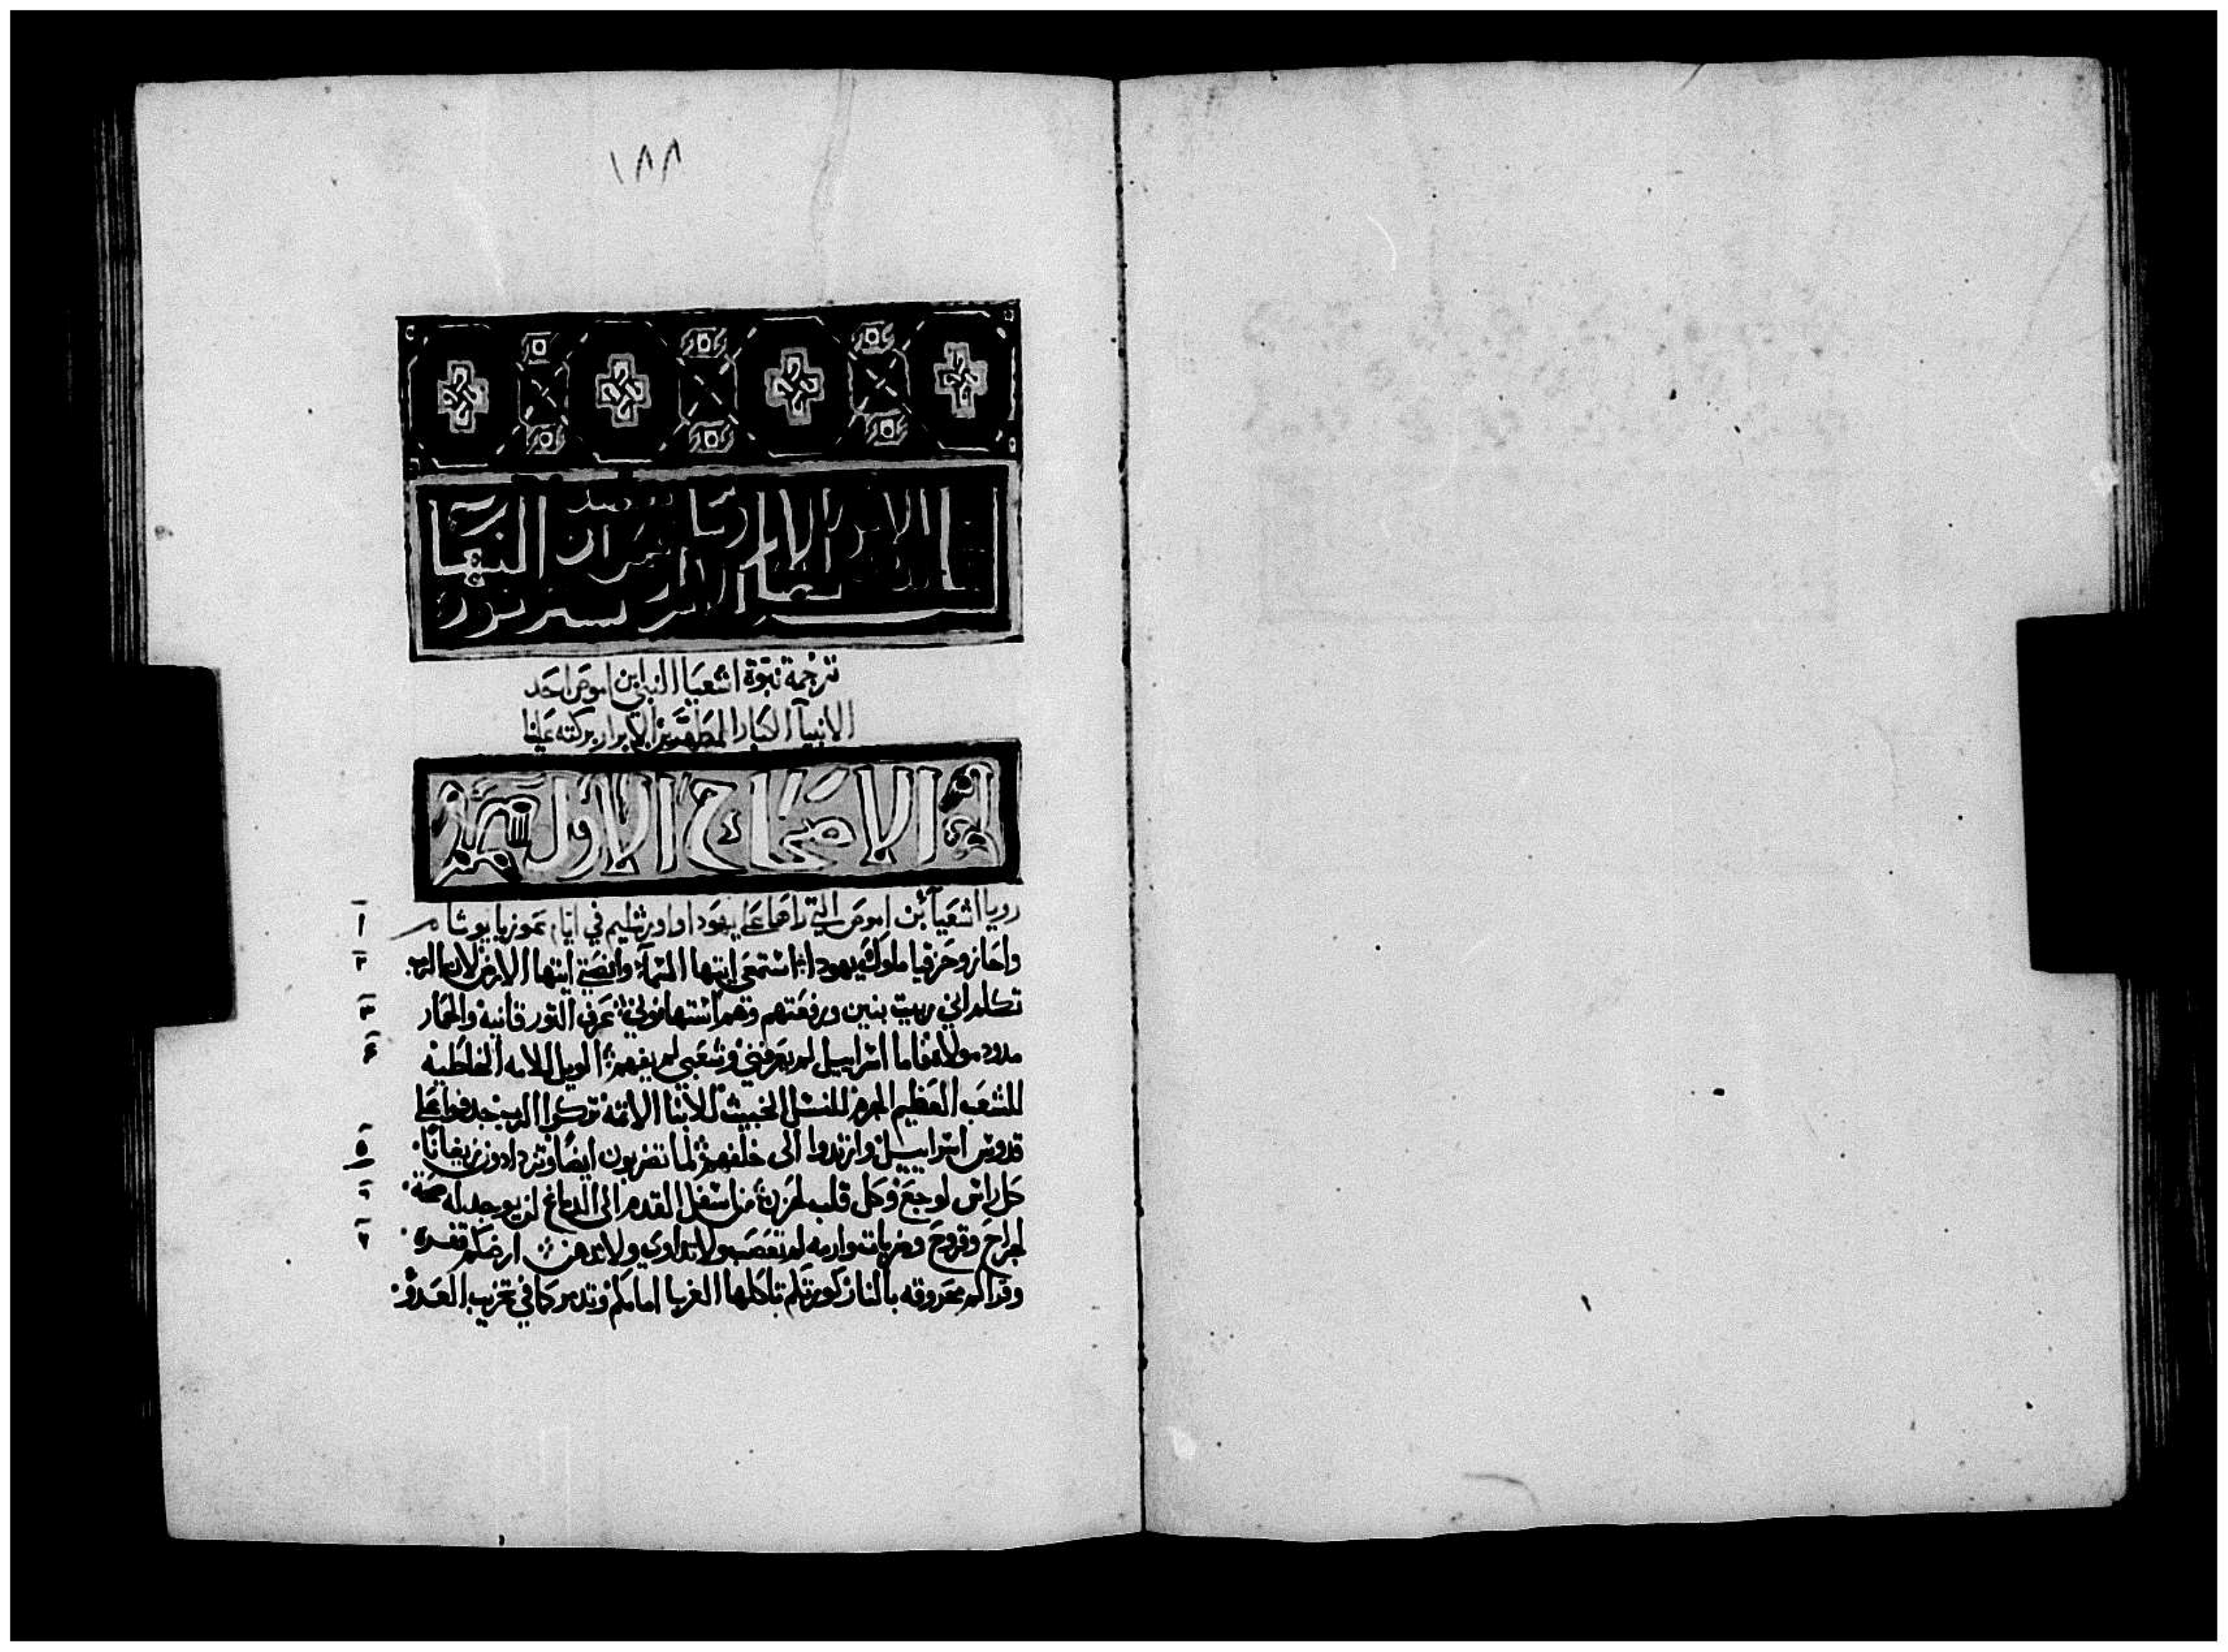 ١٨٨
ترجمة نبوة اشعيا النبي ابن اموص احد
الانبيآ الكبار المطهرين الابرار بركته علينا
الاصحاح الاول
١ رويا اشعيا بن اموص التي راها على يهودا واورشليم في ايام عوزيا يوثام
٢ واحاز وحزقيا ملوك يهودا استمعي ايتها السمآ وانصتي ايتها الارض لان الرب
٣ تكلم اني ربيت بنين ورفعتهم وهم استهانوني عرف الثور قانيه والحمار
٤ مدود مولاه فاما اسراييل لم يعرفني وشعبي لم يفهم الويل للامه الخاطيه
للشعب العظيم الجرم للنسل الخبيث للابنا الاثمة تركوا الرب جدفوا على
٥ قدوس اسراييل وارتدوا الى خلفهم لما تضربون ايضا وتزدادون زيغانا
٦ كل راس لوجع وكل قلب لحزن من اسفل القدم الى الدماغ لن يوجد له صحة
٧ لجراح وقروح وضربات وارمه لم تعصب ولا تداوى ولا تدهن ارضكم قفره
وقراكم محروقه بالنار كورتكم تاكلها الغربا امامكم وتدمر كما في تخريب العدو